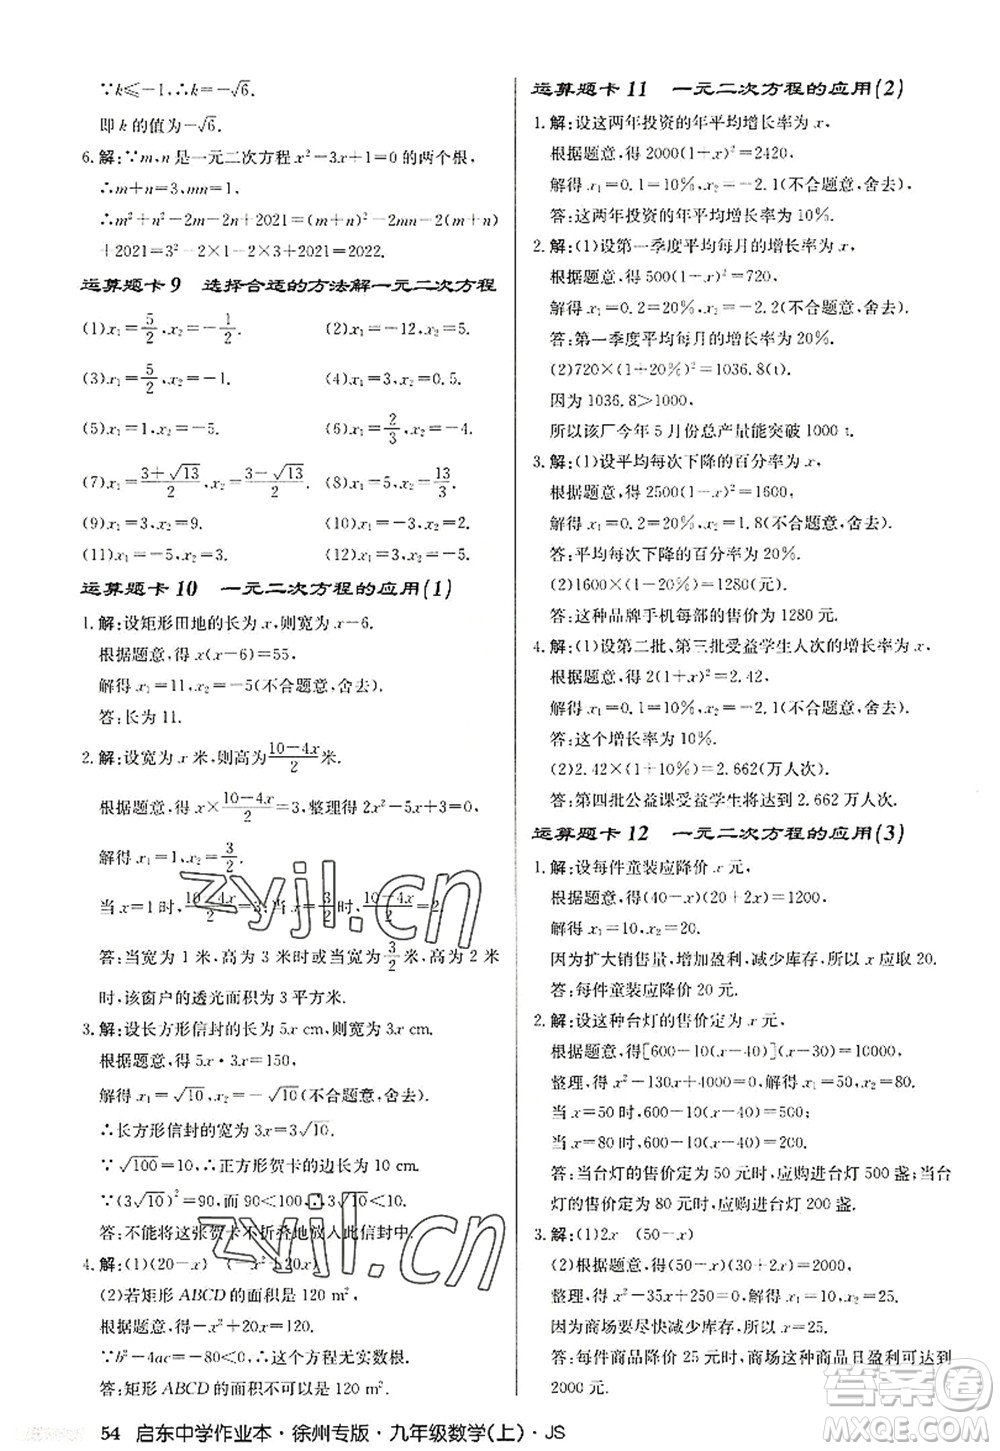 ∵k≤-1,∴k=-√6.
即 k 的值为-√6.
6. 解:∵m,n 是一元二次方程 x²-3x+1=0 的两个根,
∴m+n=3,mn=1,
∴m²+n²-2m-2n+2021=(m+n)²-2mn-2(m+n)
+2021=3²-2×1-2×3+2021=2022.
运算题卡 9 选择合适的方法解一元二次方程
(1)x₁=5/2,x₂=-1/2. (2)x₁=-12,x₂=5.
(3)x₁=5/2,x₂=-1. (4)x₁=3,x₂=0.5.
(5)x₁=1,x₂=-5. (6)x₁=2/3,x₂=-4.
(7)x₁=(3+√13)/2,x₂=(3-√13)/2. (8)x₁=-5,x₂=13/3.
(9)x₁=2,x₂=3. (10)x₁=-3,x₂=2.
(11)x₁=-5,x₂=3. (12)x₁=5,x₂=3.
运算题卡 10 一元二次方程的应用(1)
1. 解:设矩形田地的长为 x,则宽为 x-6.
根据题意,得 x(x-6)=55,
解得 x₁=11,x₂=-5(不合题意,舍去).
答:长为 11.
2. 解:设宽为 x 米,则高为(10-4x)/2米.
根据题意,得 x×(10-4x)/2=3,整理得 2x²-5x+3=0,
解得 x₁=1,x₂=3/2.
当 x=1 时,(10-4x)/2=3;当 x=3/2时,(10-4x)/2=2.
答:当宽为 1 米时,高为 3 米;当宽为3/2米时,高为 2 米
时,该窗户的透光面积为 3 平方米.
3. 解:设长方形信封的长为 5x cm,则宽为 3x cm.
根据题意,得 5x·3x=150,
解得 x₁=√10,x₂=-√10(不合题意,舍去).
∴长方形信封的宽为 3x=3√10.
∵√100=10,∴正方形贺卡的边长为 10 cm.
∵(3√10)²=90,而 90<100,∴3√10<10,
答:不能将这张贺卡不折叠地放入此信封中.
4. 解:(1)(20-x) (-x²+20x)
(2)若矩形 ABCD 的面积是 120 m²,
根据题意,得-x²+20x=120.
∵b²-4ac=-80<0,∴这个方程无实数根.
答:矩形 ABCD 的面积不可以是 120 m².
运算题卡 11 一元二次方程的应用(2)
1. 解:设这两年投资的年平均增长率为 x,
根据题意,得 2000(1+x)²=2420,
解得 x₁=0.1=10%,x₂=-2.1(不合题意,舍去).
答:这两年投资的年平均增长率为 10%.
2. 解:(1)设第一季度平均每月的增长率为 x,
根据题意,得 500(1+x)²=720,
解得 x₁=0.2=20%,x₂=-2.2(不合题意,舍去).
答:第一季度平均每月的增长率为 20%.
(2)720×(1+20%)²=1036.8(t).
因为 1036.8>1000,
所以该厂今年 5 月份总产量能突破 1000 t.
3. 解:(1)设平均每次下降的百分率为 x,
根据题意,得 2500(1-x)²=1600,
解得 x₁=0.2=20%,x₂=1.8(不合题意,舍去).
答:平均每次下降的百分率为 20%.
(2)1600×(1-20%)=1280(元).
答:这种品牌手机每部的售价为 1280 元.
4. 解:(1)设第二批、第三批受益学生人次的增长率为 x,
根据题意,得 2(1+x)²=2.42,
解得 x₁=0.1=10%,x₂=-2.1(不合题意,舍去).
答:这个增长率为 10%.
(2)2.42×(1+10%)=2.662(万人次).
答:第四批公益课受益学生将达到 2.662 万人次.
运算题卡 12 一元二次方程的应用(3)
1. 解:设每件童装应降价 x 元,
根据题意,得(40-x)(20+2x)=1200,
解得 x₁=10,x₂=20.
因为扩大销售量,增加盈利,减少库存,所以 x 应取 20.
答:每件童装应降价 20 元.
2. 解:设这种台灯的售价定为 x 元,
根据题意,得[600-10(x-40)](x-30)=10000,
整理,得 x²-130x+4000=0,解得 x₁=50,x₂=80.
当 x=50 时,600-10(x-40)=500;
当 x=80 时,600-10(x-40)=200.
答:当台灯的售价定为 50 元时,应购进台灯 500 盏;当台
灯的售价定为 80 元时,应购进台灯 200 盏.
3. 解:(1)2x (50-x)
(2)根据题意,得(50-x)(30+2x)=2000,
整理,得 x²-35x+250=0,解得 x₁=10,x₂=25.
因为商场要尽快减少库存,所以 x=25.
答:每件商品降价 25 元时,商场这种商品日盈利可达到
2000 元.
54 启东中学作业本·徐州专版·九年级数学(上)·JS
zyjl.cn
zyjl.cn
答案圈
MXQE.COM